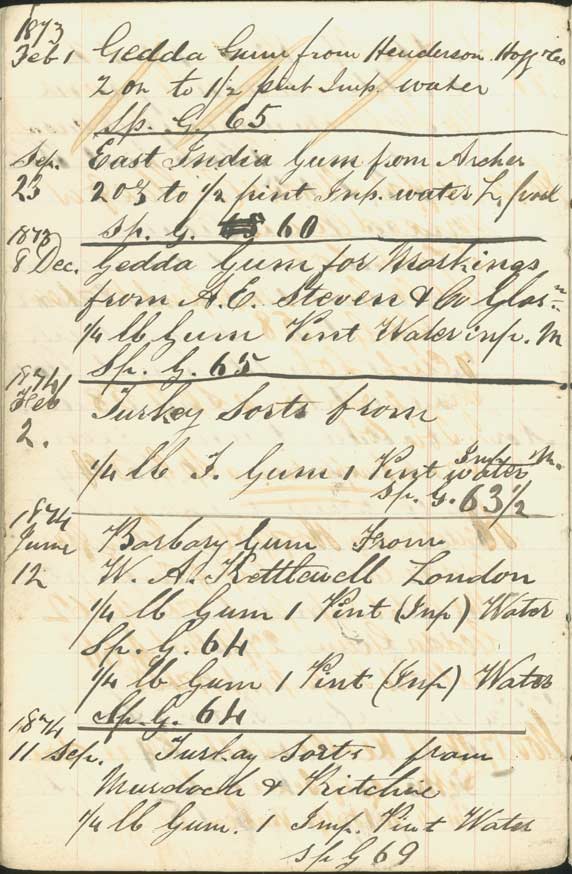 1873
Feb 1 Gedda Gum from Henderson Hogg & Co
2 oz to 1/2 pint Imp. water
Sp. G. 65
Sep. East India Gum from Archer
23 2 oz to 1/2 pint Imp. water
Sp. G. 60
1873
8 Dec. Gedda Gum for Markings
from A. E. Steven & Co Glas
1/4 lb Gum Pint Water imp. M
Sp. G. 65
1874
Feb Turkey Sorts from
2.
1/4 lb T. Gum 1 Pint Imp water M.
Sp. G. 63 1/2
1874
June Barbary Gum From
12 W. A. Kettlewell London
1/4 lb Gum 1 Pint (Imp) Water
Sp. G. 64
1/4 lb Gum 1 Pint (Imp) Water
Sp. G. 64
1874
11 Sep. Turkay Sorts from
Murdoch & Ritchie
1/4 lb Gum. 1 Imp. Pint Water
Sp G 69